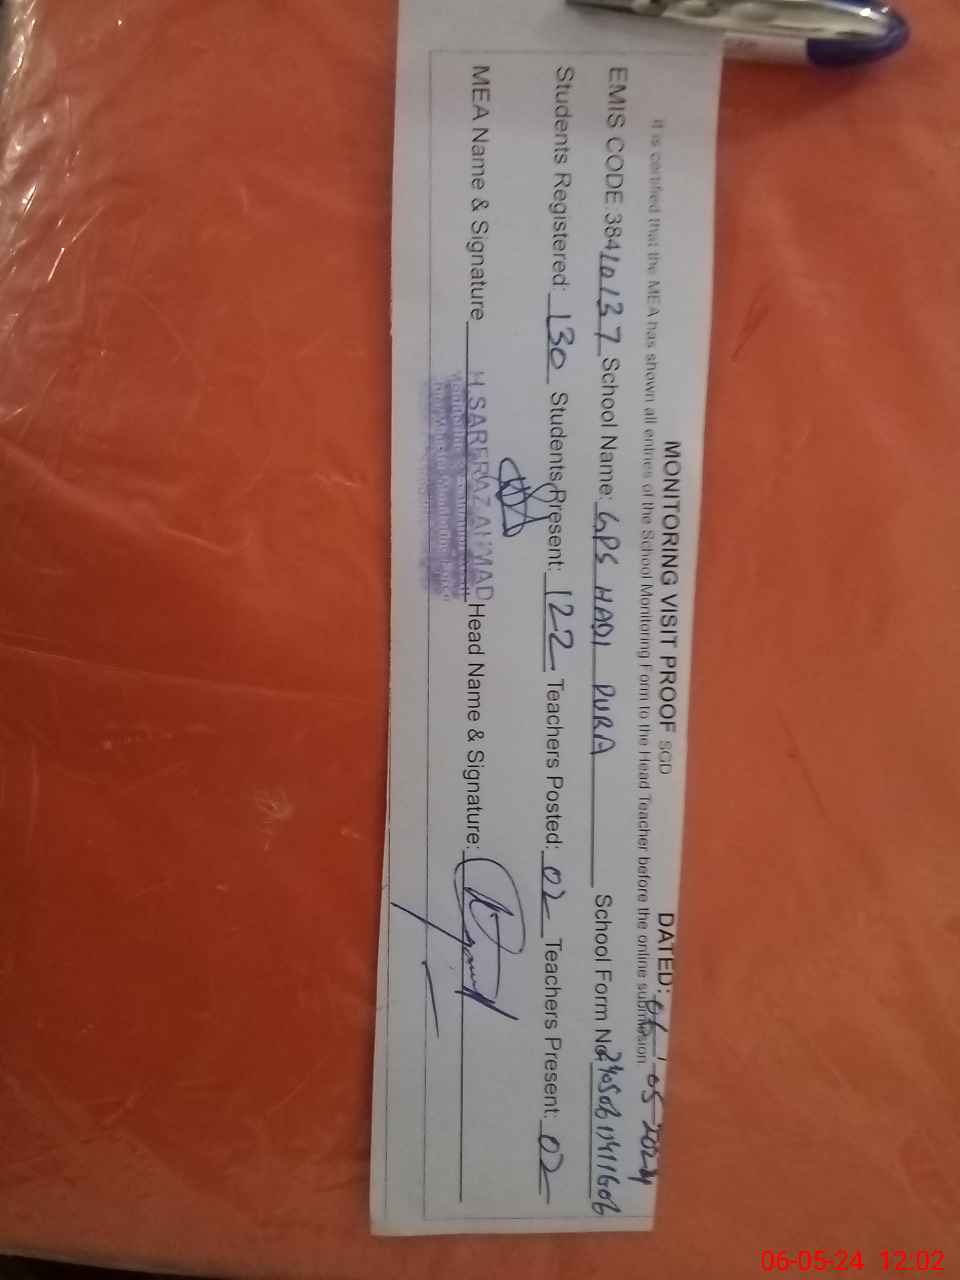 MONITORING VISIT PROOF SGD DATED: 06/05-2024
It is certified that the MEA has shown all entries of the School Monitoring Form to the Head Teacher before the online submission.
EMIS CODE 38410137 School Name: GPS HADI PURA School Form No.
Students Registered: 130 Students Present: 122 Teachers Posted: 02 Teachers Present: 02
MEA Name & Signature H SARFRAZ AHMAD Head Name & Signature:
06-05-24 12:02